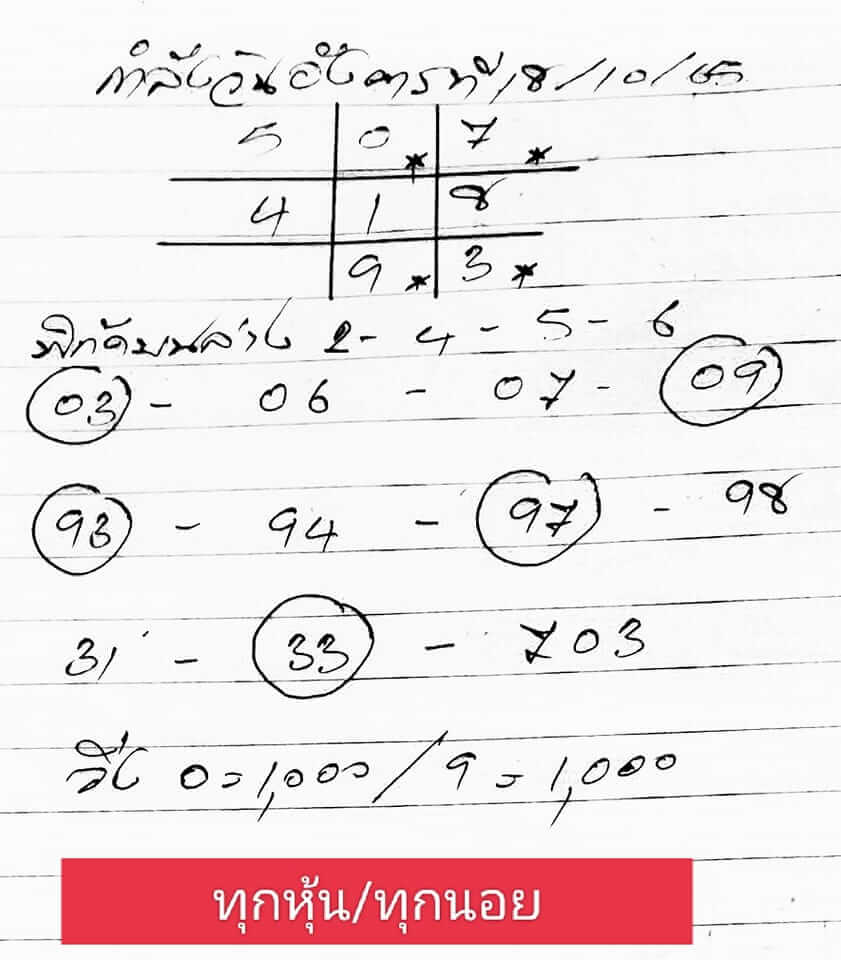 กำลังวันอังคารที่ 18/10/65
5 0 * 7 *
4 1 8
9 * 3 *
พิกัดบนล่าง 2 - 4 - 5 - 6
03 - 06 - 07 - 09
93 - 94 - 97 - 98
31 - 33 - 703
วิ่ง 0=1,000/9=1,000
ทุกหุ้น/ทุกนอย